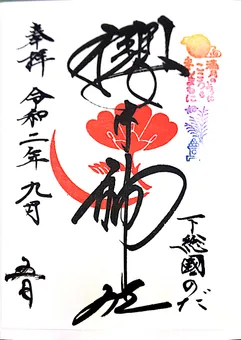 奉拝
令和二年九月
五日
櫻木神社
下総國のだ